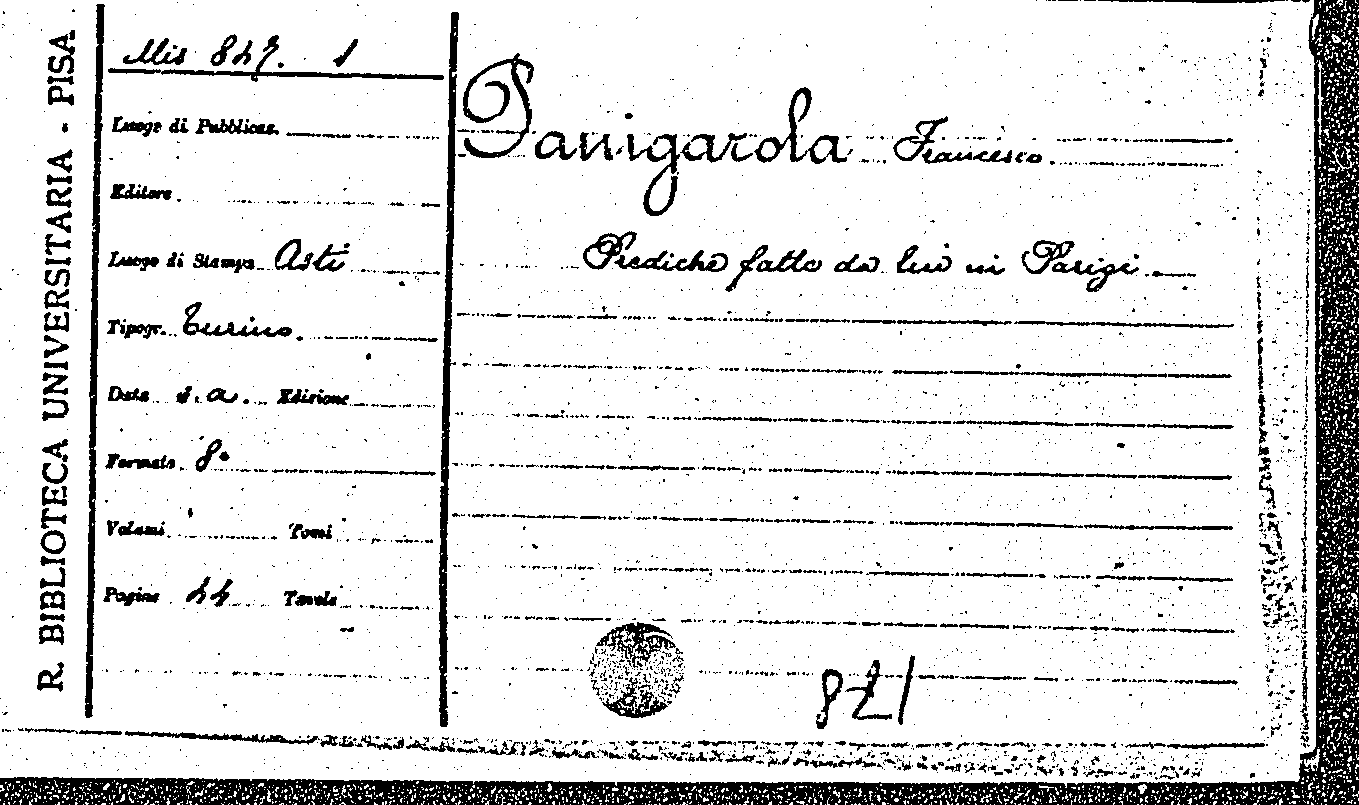 R. BIBLIOTECA UNIVERSITARIA - PISA
Mis 847. 1
Luogo di Pubblicaz.
Editore
Luogo di Stampa Asti
Tipogr. Turino
Data s.a. Edizione
Formato 8°
Volumi Tomi
Pagine 44 Tavole
Panigarola Francesco
Prediche fatte da lui in Parigi
821